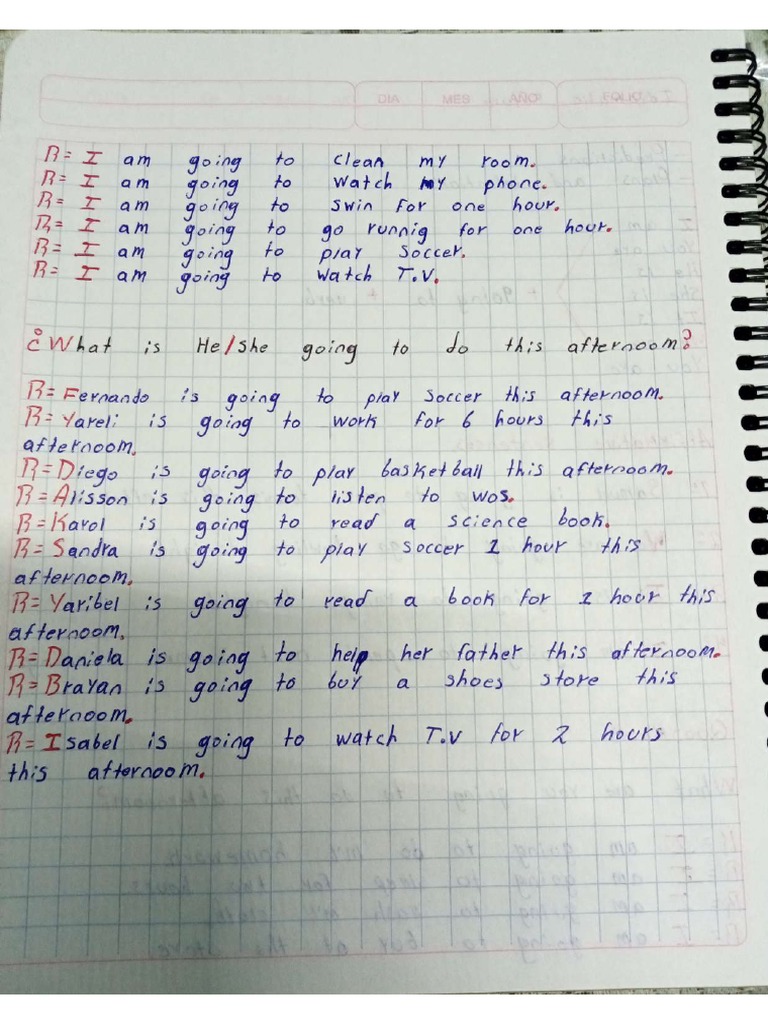 DIA MES AÑO FOLIO
R= I am going to clean my room.
R= I am going to watch my phone.
R= I am going to swin for one hour.
R= I am going to go runnig for one hour.
R= I am going to play soccer.
R= I am going to watch T.V.
¿What is He/She going to do this afternoom?
R= Fernando is going to play soccer this afternoom.
R= Yareli is going to work for 6 hours this
afternoom.
R= Diego is going to play basketball this afternoom.
R= Alisson is going to listen to wos.
R= Karol is going to read a science book.
R= Sandra is going to play soccer 1 hour this
afternoom.
R= Yaribel is going to read a book for 1 hour this
afternoom.
R= Daniela is going to help her father this afternoom.
R= Brayan is going to buy a shoes store this
afternoom.
R= Isabel is going to watch T.v for 2 hours
this afternoom.